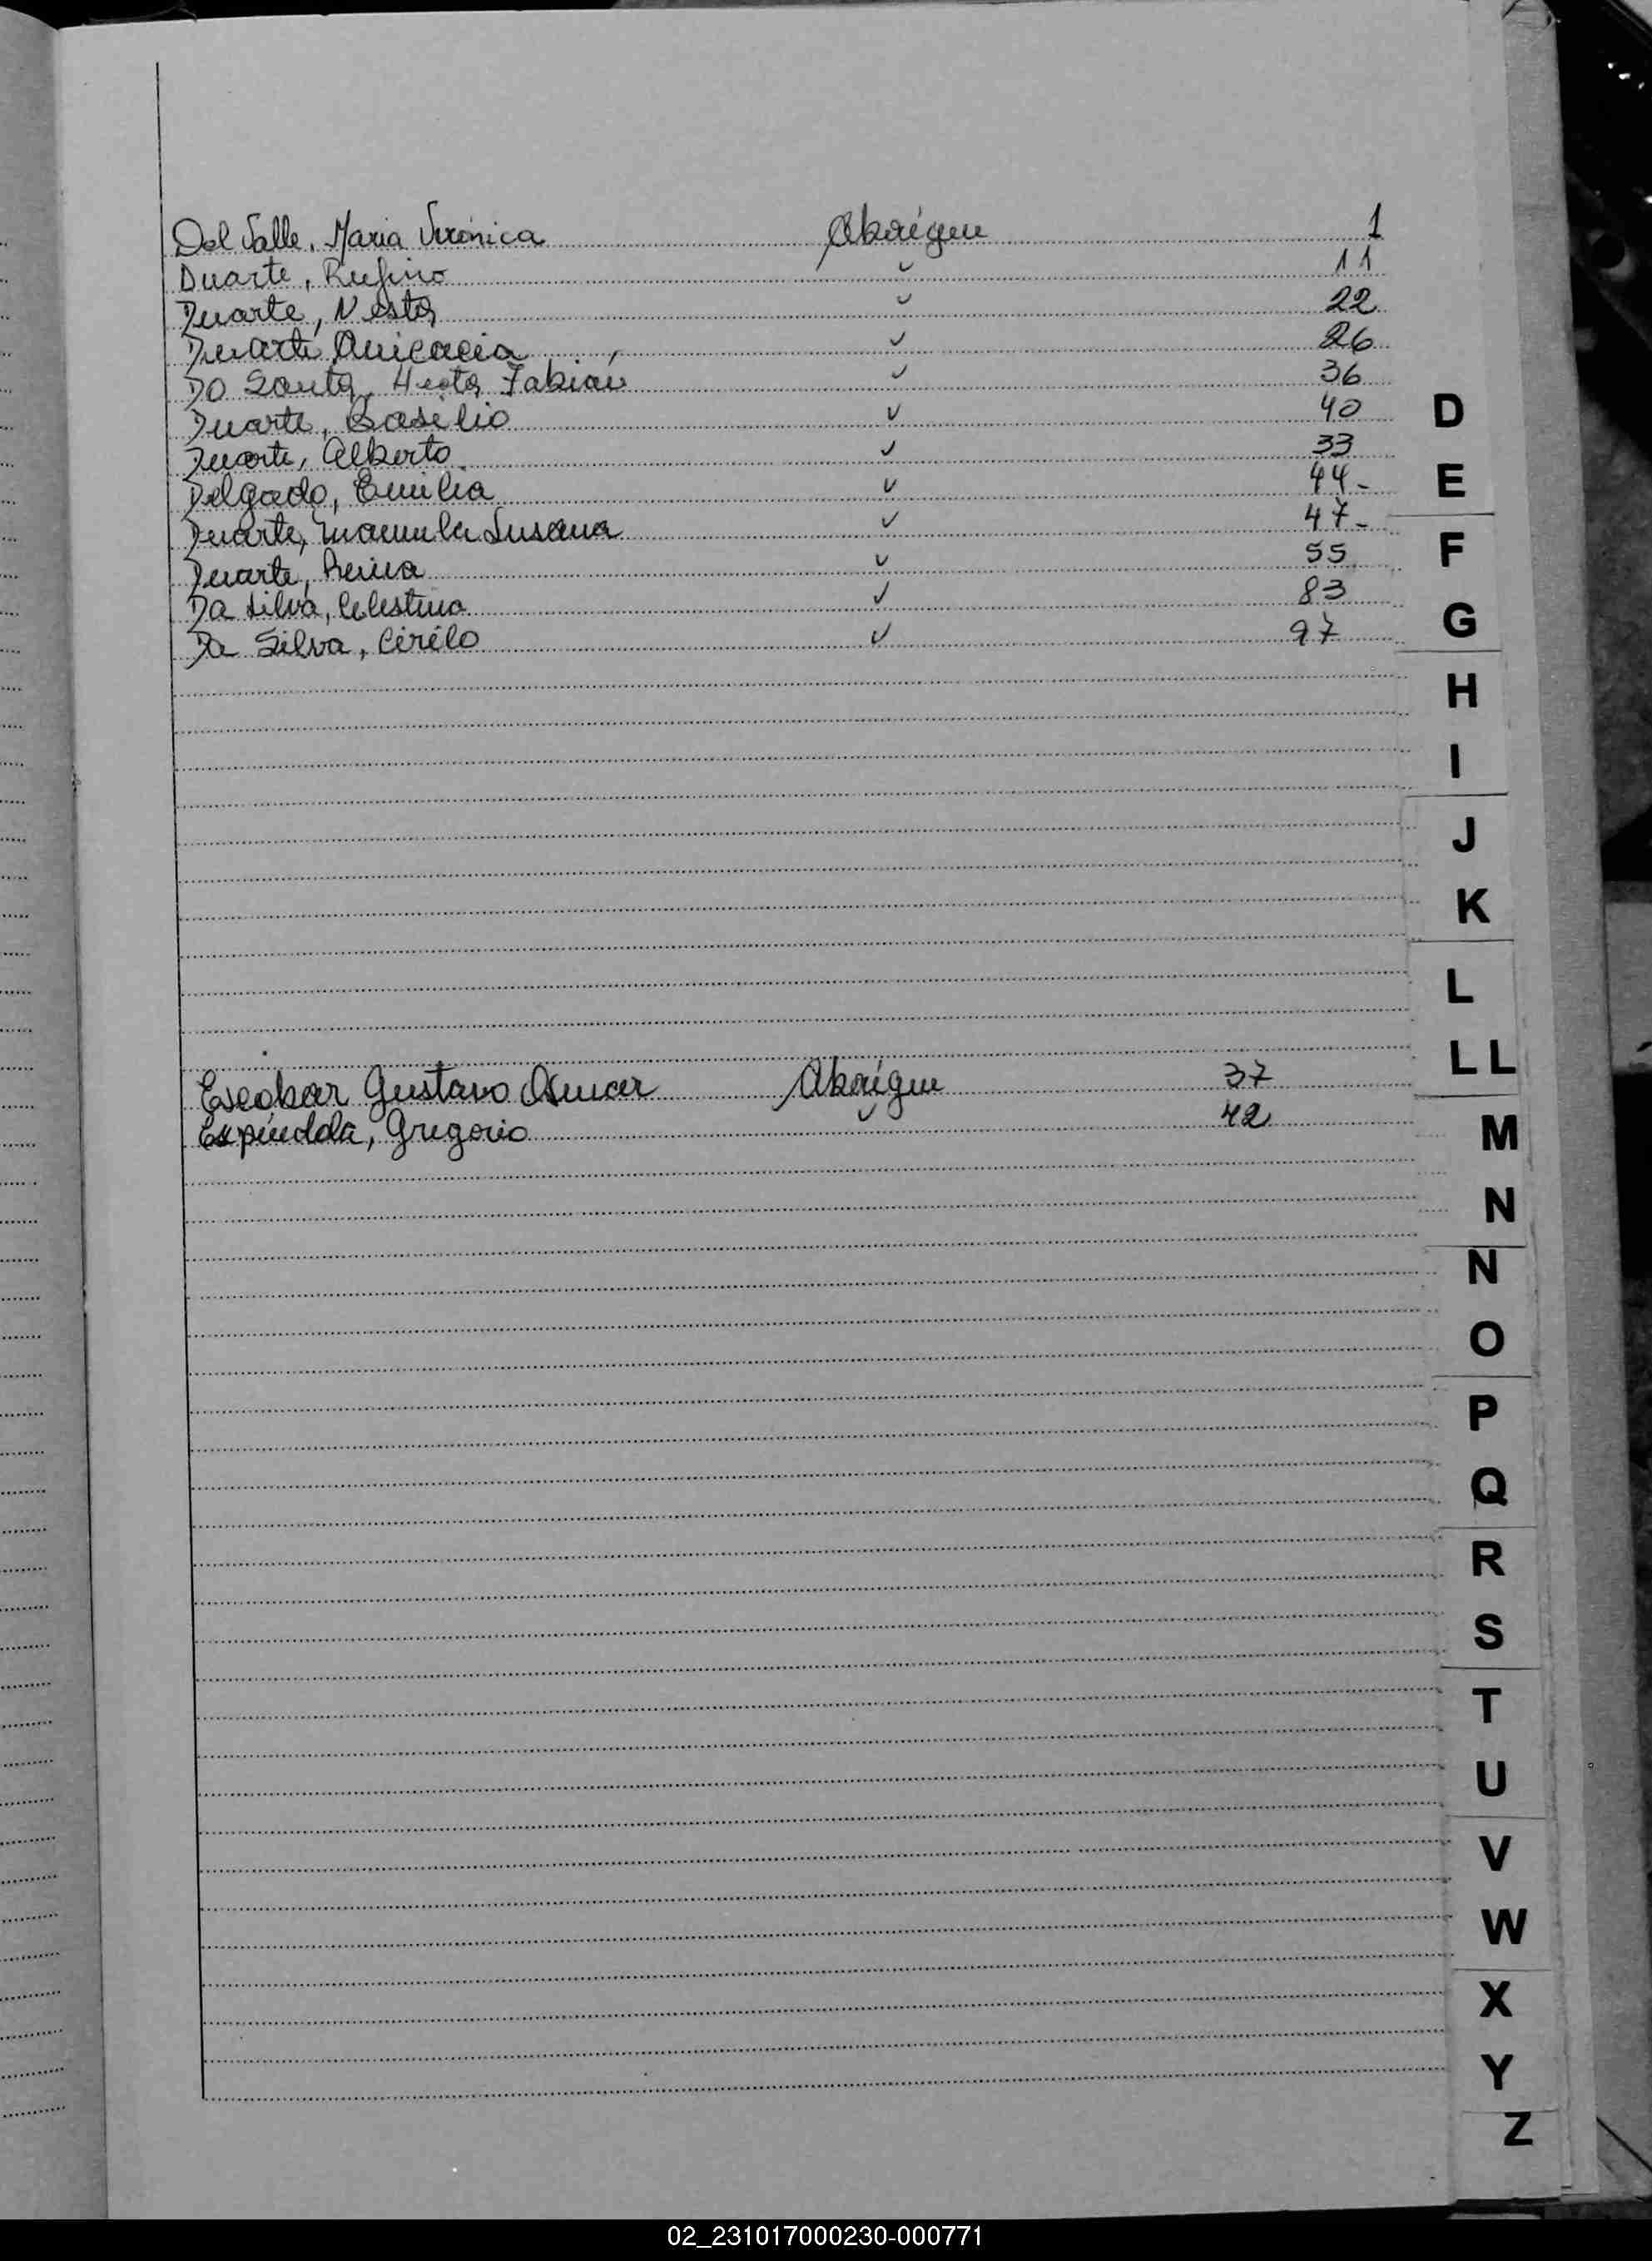 Del Valle, Maria Verónica Aborigen 1
Duarte, Rufino " 11
Duarte, Nestor " 22
Duarte 26
Do Santo, Hector Fabian " 36
Duarte, Basilio " 40
Duarte, Alberto " 33
Delgado, Emilia " 44-
Duarte, Manuela Susana " 47-
Duarte, Reina " 55
Da Silva, Celestino " 83
Da Silva, Cirilo " 97
D
E
F
G
H
I
J
K
L
LL
Escobar Gustavo Osmar Aborigen 37
Espíndola, Gregorio " 42
M
N
N
O
P
Q
R
S
T
U
V
W
X
Y
Z
02_231017000230-000771